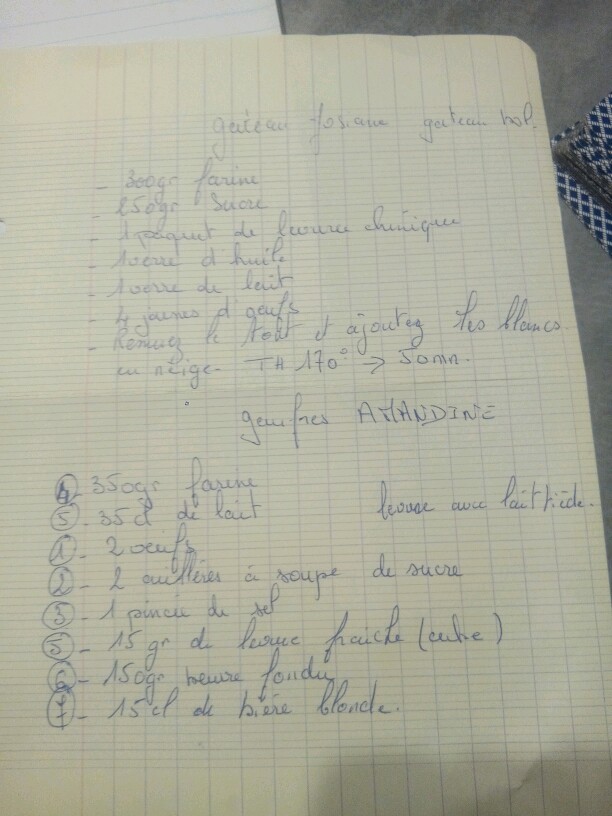 gâteau Josiane gateau
- 300gr farine
- 250gr Sucre
- 1 paquet de levure chimique
- 1 verre d'huile
- 1 verre de lait
- 4 jaunes d'oeufs
- Remuez le tout et ajoutez les blancs
en neige. TH 170° → 50mn.
gaufres AMANDINE
④ - 350gr farine
⑤ - 35cl de lait levure avec lait tiède.
① - 2 oeufs
② - 2 cuillères à soupe de sucre
③ - 1 pincée de sel
⑤ - 15 gr de levure fraiche (cube)
⑥ - 150gr beurre fondu
⑦ - 15cl de bière blonde.